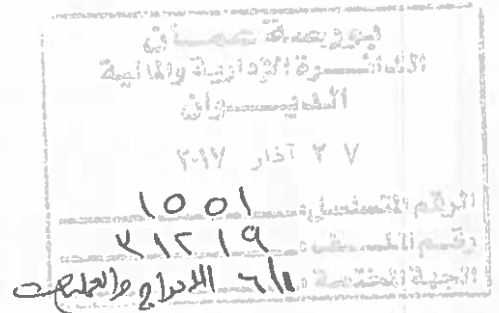 بورصة عمان
الدائرة الإدارية والمالية
الديوان
٠٧ آذار ٢٠١٧
الرقم المتسلسل: ١٥٥١
رقم الملف: ٣١٢١٩
الجهة المختصة: الادراج والعمليات